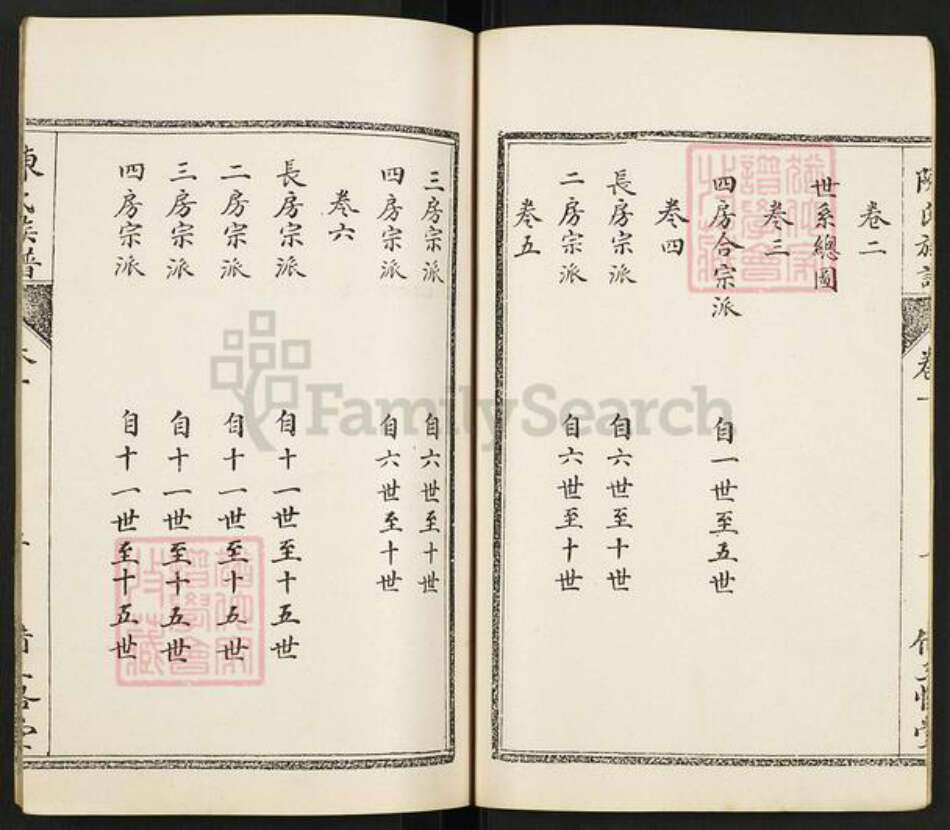 陳氏族譜
卷一
卷二
世系總圖
卷三
四房合宗派 自一世至五世
卷四
長房宗派 自六世至十世
二房宗派 自六世至十世
卷五
三房宗派 自六世至十世
四房宗派 自六世至十世
卷六
長房宗派 自十一世至十五世
二房宗派 自十一世至十五世
三房宗派 自十一世至十五世
四房宗派 自十一世至十五世
陳氏族譜
卷一
FamilySearch